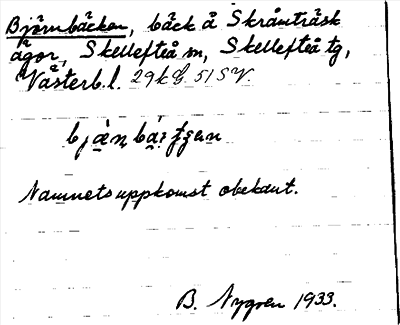 Björnbäcken, bäck å Skråmträsk
ägor, Skellefteå sn, Skellefteå tg,
Västerb. l. 29k G 51 SV.
Namnets uppkomst obekant.
B. Nygren 1933.